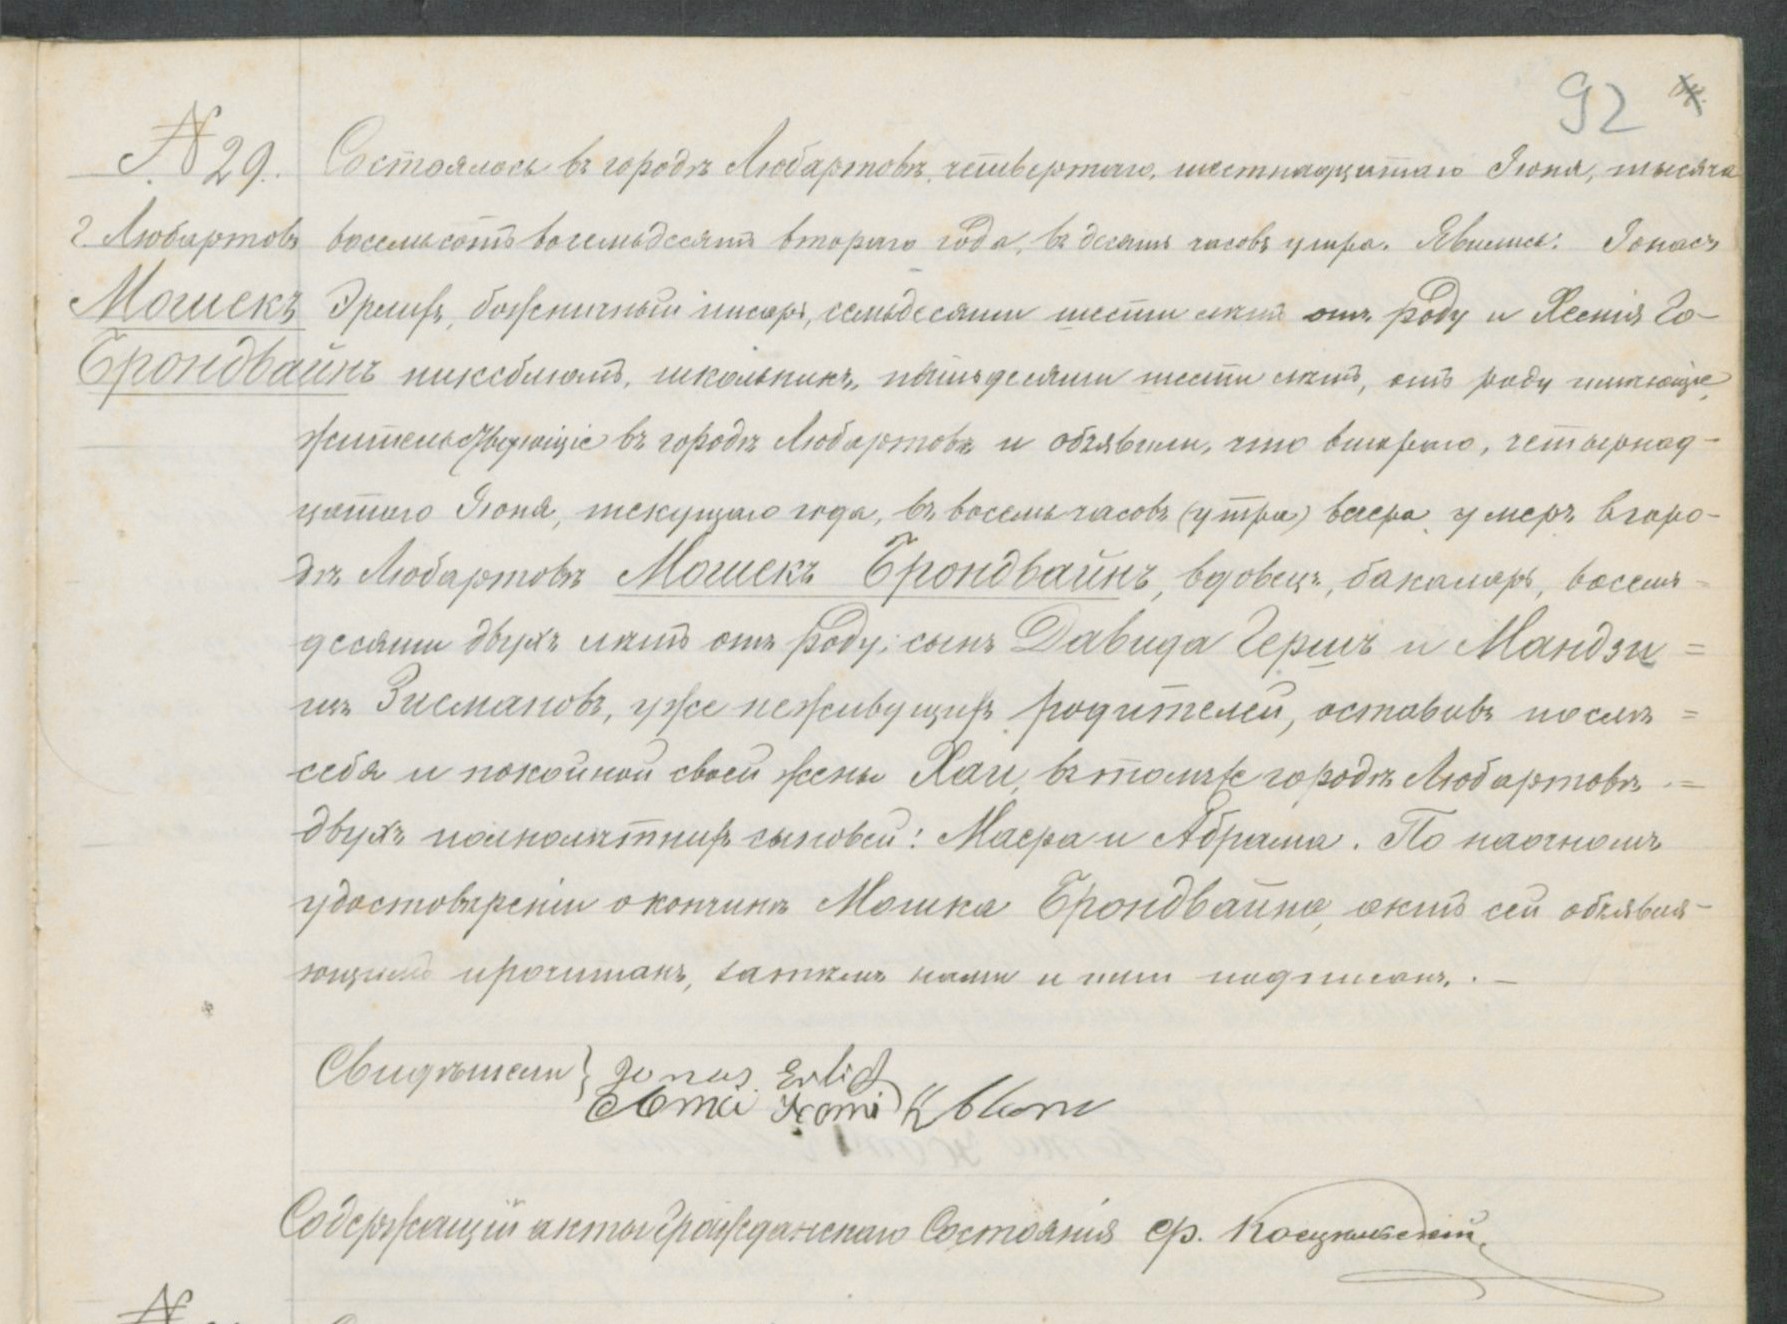 92
№ 29.
г. Любартовъ
Мошекъ
Брондвайнъ
Состоялось въ городѣ Любартовѣ, четвертаго, шестнадцатаго Іюня, тысяча
восемьсотъ восемьдесятъ втораго года, въ десять часовъ утра. Явились: Іонасъ
Эрлихъ, божничный писарь, семьдесяти шести лѣтъ отъ роду и
школьникъ, пятьдесяти шести лѣтъ, отъ роду имѣющіе,
жительствующіе въ городѣ Любартовѣ и объявили, что втораго, четырнад-
цатаго Іюня, текущаго года, въ восемь часовъ (утра) вечера, умеръ въ горо-
дѣ Любартовѣ Мошекъ Брондвайнъ, вдовецъ, бакаляръ, восемь-
десяти двухъ лѣтъ отъ роду, сынъ Давида Гершъ и Мандзи =
изъ Зисмановъ, уже неживущихъ родителей, оставивъ послѣ =
себя и покойной своей жены Хаи, въ томъ же городѣ Любартовѣ =
двухъ полнолѣтнихъ сыновей: Маера и Абрама. По наочномъ
удостовѣреніи о кончинѣ Мошка Брондвайна, актъ сей объявля-
ющимъ прочитанъ, затѣмъ нами и ими подписанъ. —
Свидѣтели } Jonas Erlich
Содержащій акты Гражданскаго Состоянія
№